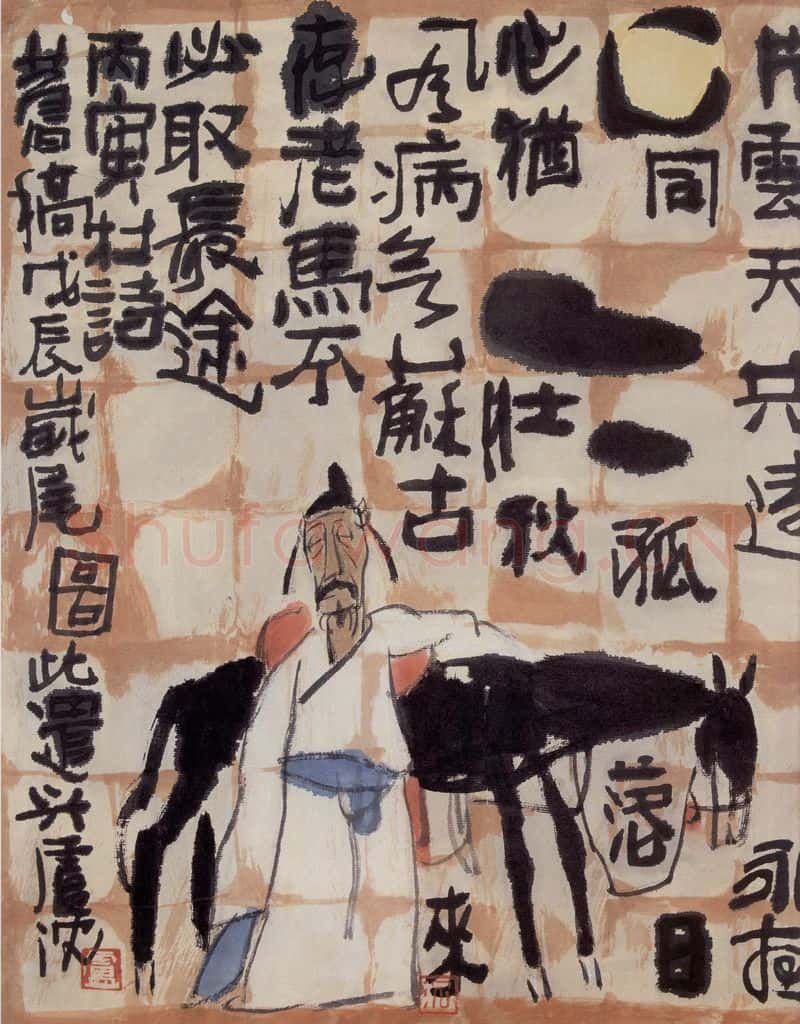 片雲天共遠永夜
同孤落日
心猶壯秋
風病欲蘇古來
存老馬不
必取長途
丙寅杜詩
舊稿戊辰歲尾圖此遣兴盧沈
盧
shufawang.CN